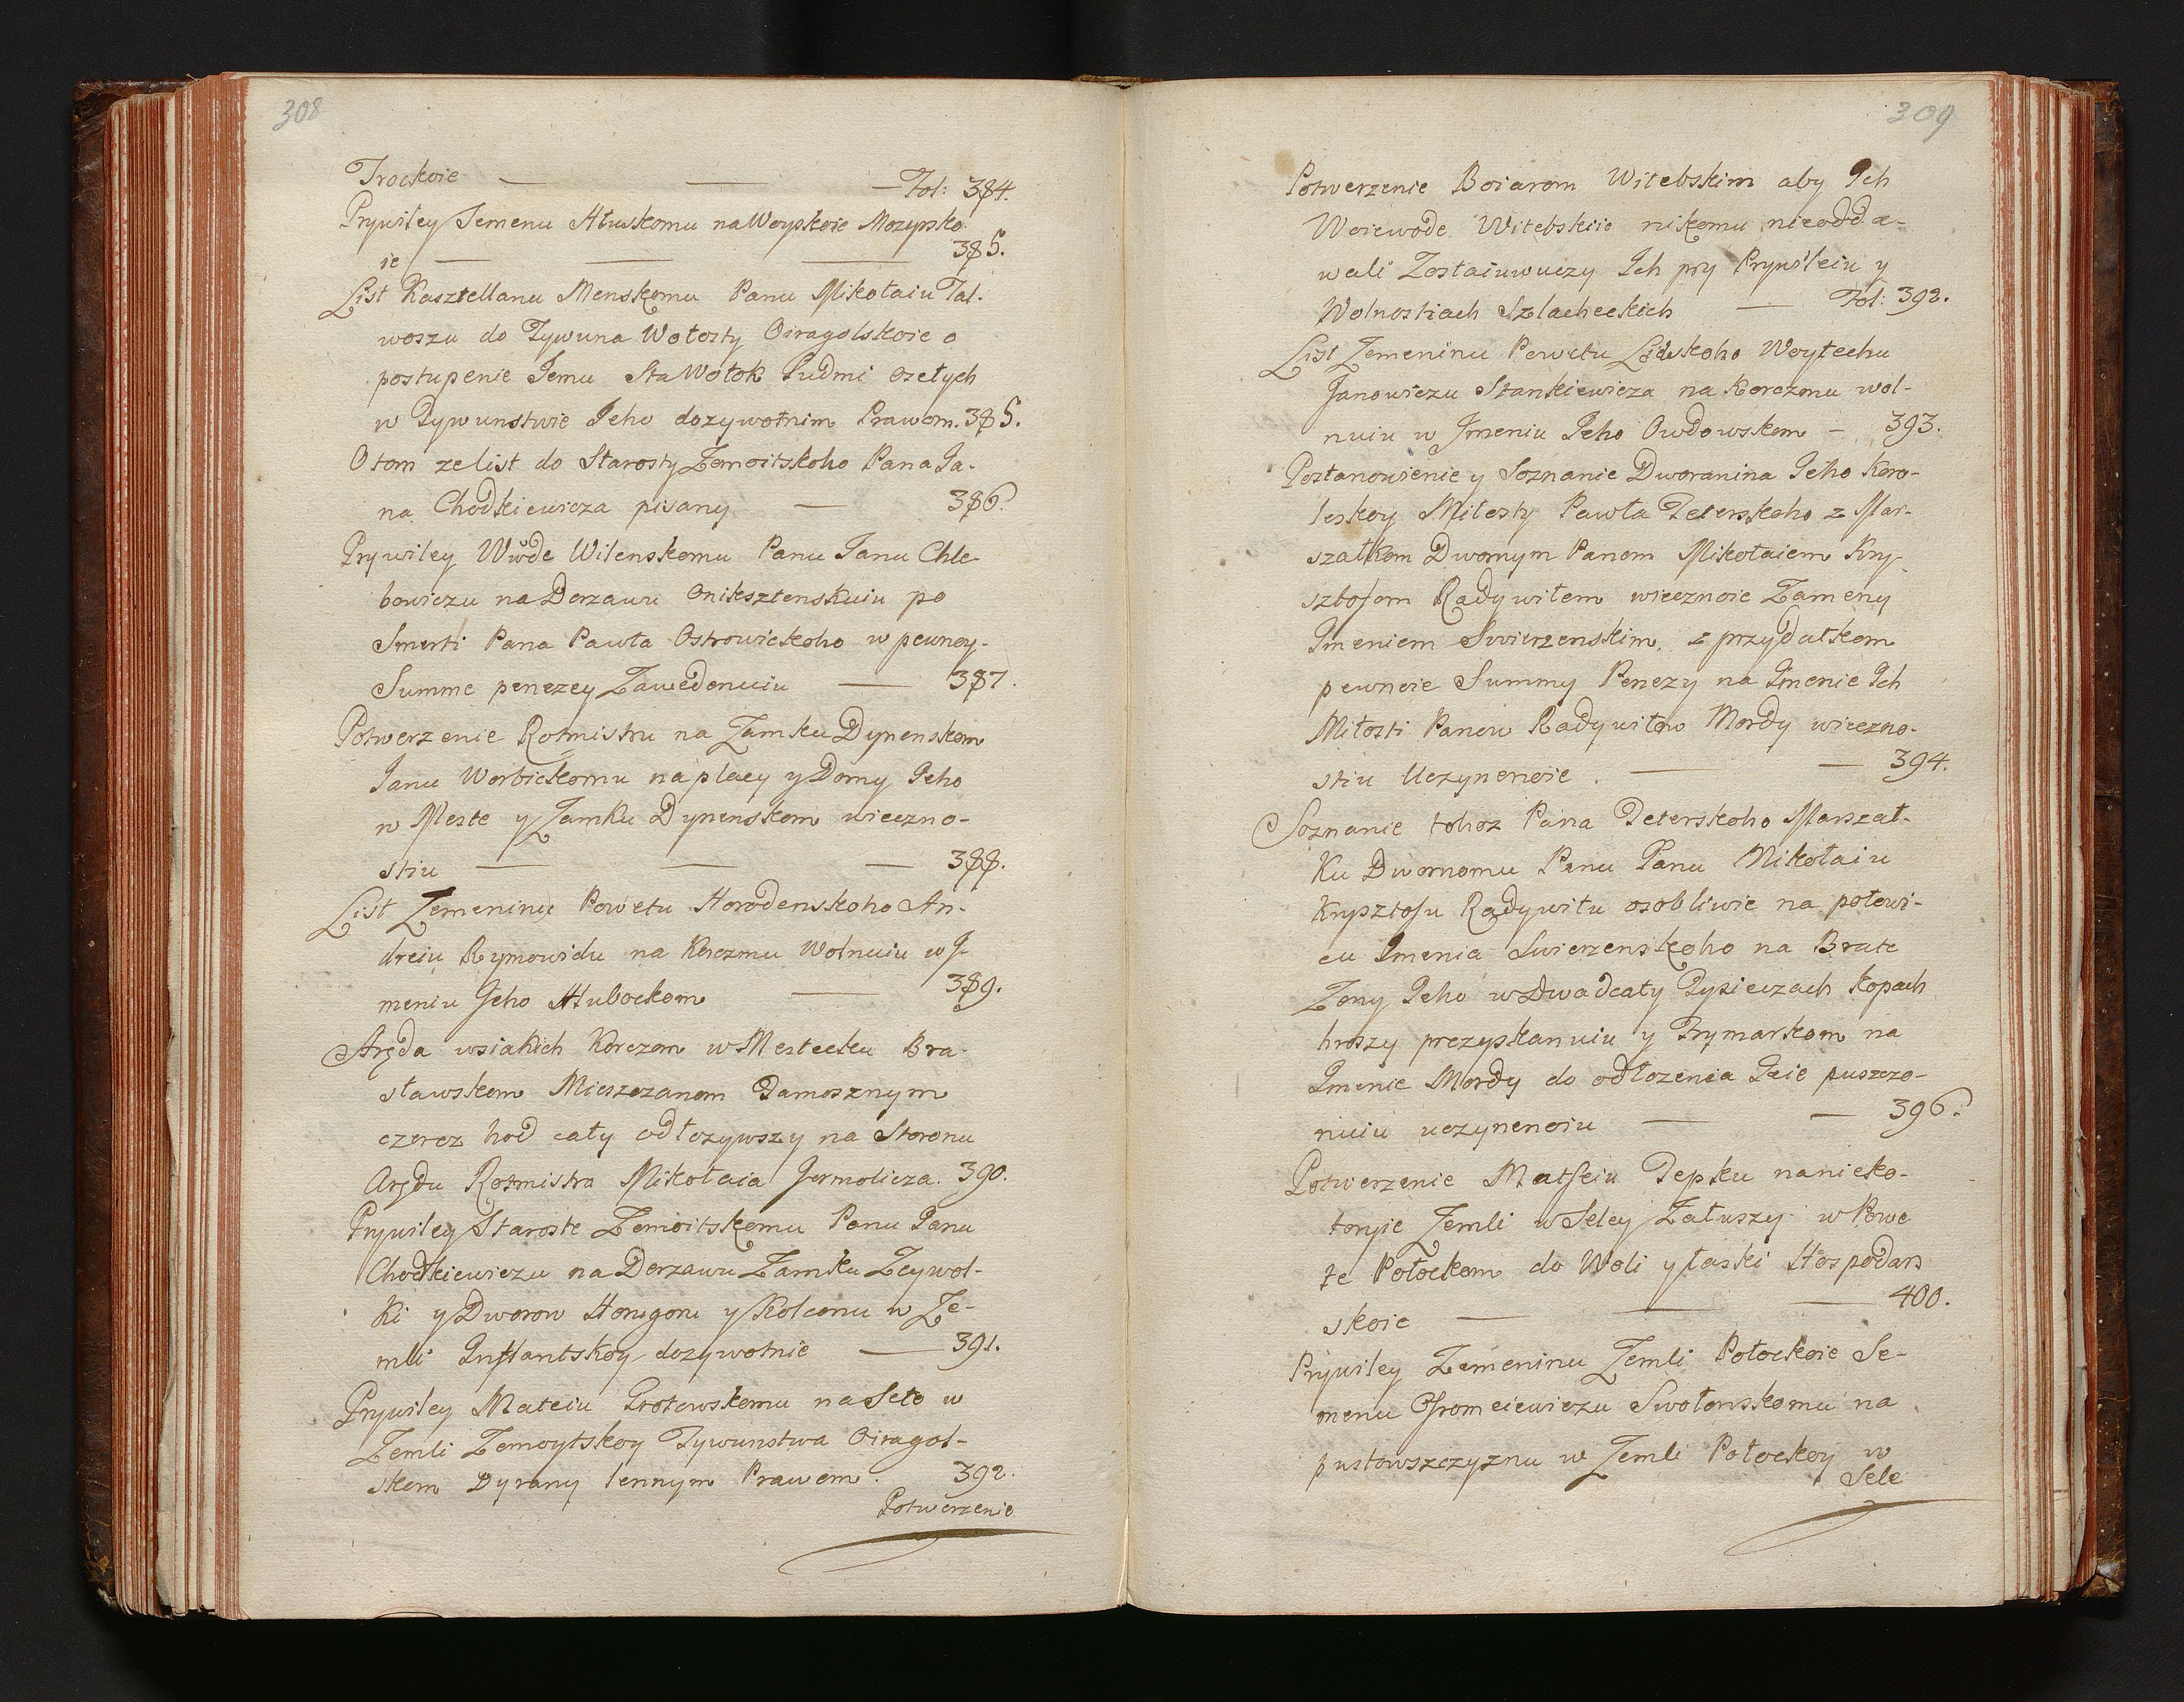 308
Trockoie — — — Fol: 384.
Prywiley Semenu Hłuskomu na Woyskoie Mozyrsko
ie — — — 385.
List Kasztellanu Menskomu Panu Mikołaiu Tal-
woszu do Tywuna Wołosty Oiragolskoie o
postupenie Jemu Sta Wołok Ludmi osełych
w Tywunstwie Jeho dozywotnim Prawom. 385.
O tom ze list do Starosty Zemoitskoho Pana Ja-
na Chodkiewicza pisany — 386.
Prywiley Wwde Wilenskomu Panu Janu Chle-
bowiczu na Derzawu Oniksztenskuiu po
Smerti Pana Pawła Ostrowickoho w pewnoy-
Summe penezey Zawedenuiu — 387.
Potwerzenie Rotmistru na Zamku Dynenskom
Janu Worbickomu na placy y Domy Jeho
w Meste y Zamku Dynenskom wieczno-
stiu — — — 388.
List Zemeninu Powetu Horodenskoho An-
dreiu Rymowidu na Korczmu Wolnuiu w J-
meniu Jeho Hłubockom — 389.
Aręda wsiakich Korczom w Mestecku Bra-
sławskom Mieszczanom Tamosznym
czerez hod cały odłozywszy na Storonu
Arędu Rotmistra Mikołaia Jermolicza. 390.
Prywiley Staroste Zemoitskomu Panu Janu
Chodkiewiczu na Derzawu Zamku Zeywol-
ki y Dworow Horugoru y Kolconu w Ze-
mli Inflantskoy dozywotnie — 391.
Prywiley Mateiu Grotowskomu na Seło w
Zemli Zemoytskoy Tywunstwa Oiragol-
skom Dyrany lennym Prawem. 392.
Potwerzenie
309
Potwerzenie Boiarom Witebskim aby Ich
Woiewode Witebskiie nikomu nieodda-
wali Zostaiuwuczy Ich pry Prywileiu y
Wolnostiach Szlacheckich — Fol: 392.
List Zemeninu Powetu Lidskoho Woytechu
Janowiczu Stankiewicza na Korczmu wol-
nuiu w Jmeniu Jeho Owdowskom — 393.
Postanowienie y Soznanie Dworanina Jeho Koro-
leskoy Miłosty Pawła Deterskoho z Mar-
szałkom Dwornym Panom Mikołaiem Kry-
sztofom Radywiłem wiecznoie Zameny
Imeniem Swierzenskim, z przydatkom
pewnoie Summy Penezy na Imenie Ich
Miłosti Panow Radywiłow Mordy wieczno-
stiu Uczynenoie. — — 394.
Soznanie tohoz Pana Deterskoho Marszał-
ku Dwornomu Panu Panu Mikołaiu
Krysztofu Radywiłu osobliwie na połowi-
cu Imenia Swierzenskoho na Brate
Zony Jeho w Dwadcaty Tysieczach Kopach
hroszy prezyskanuiu y Frymarkom na
Imenie Mordy do odłozenia Jeie puszczo-
nuiu uczynenoiu — — 396.
Potwerzenie Matfeiu Depku na nieko-
toryie Zemli w Seley Załuszy w Powe
te Połockom do Woli y łaski Hospodars
skoie — — — 400.
Prywiley Zemeninu Zemli Połockoie Se-
menu Ofromeiewiczu Swołenskomu na
pustowszczyznu w Zemli Połockoy w
Sele